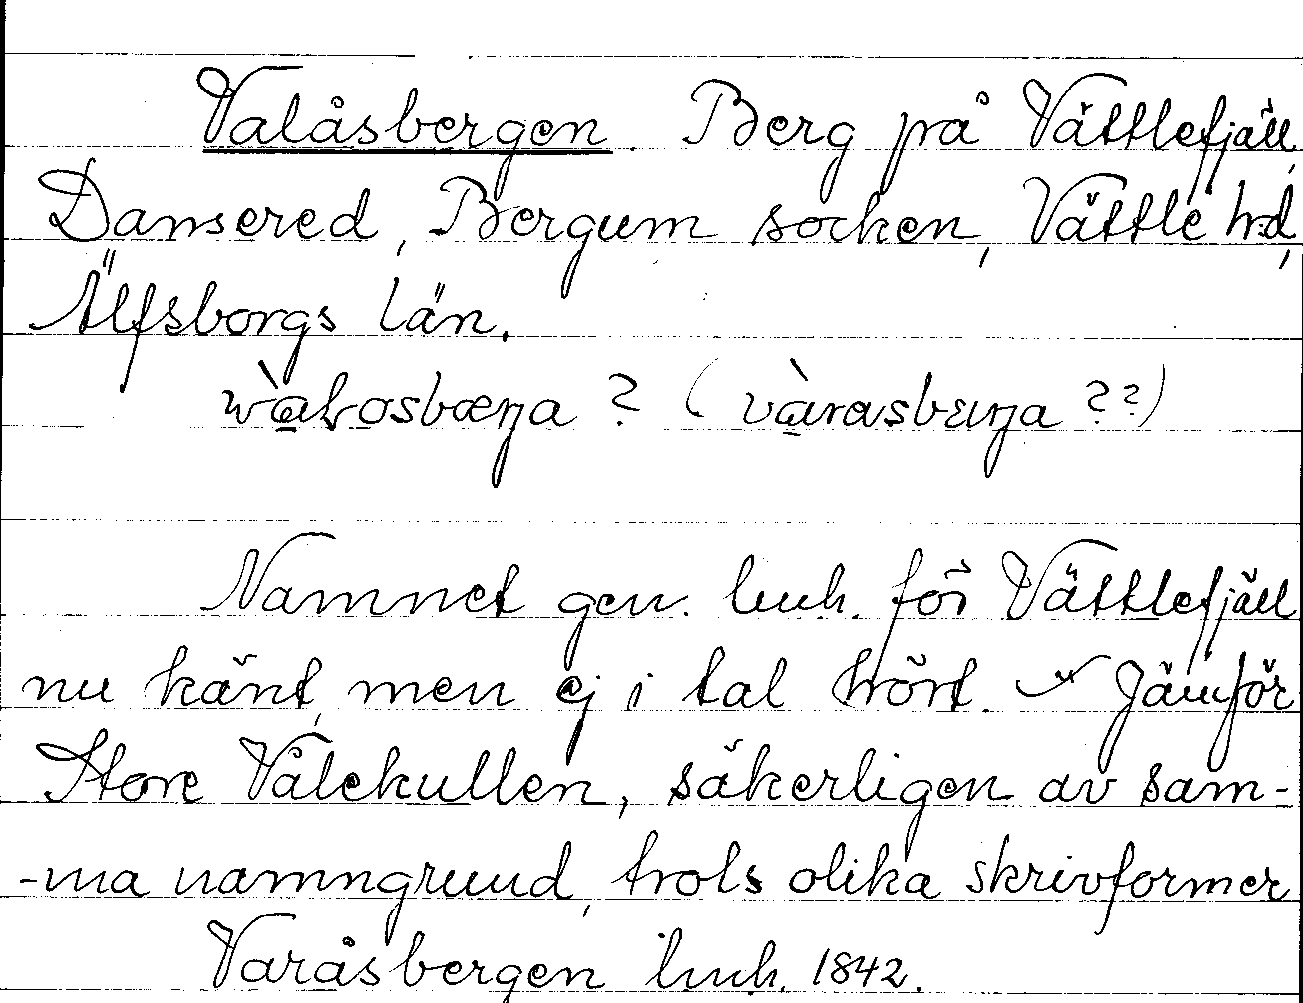 Valåsbergen. Berg på Vättlefjäll,
Dansered, Bergum socken, Vättle hd,
Älfsborgs län.
? ( ??)
Namnet gen. lmh. för Vättlefjäll
nu känt, men ej i tal hört. Jämför
Store Vålekullen, säkerligen av sam-
-ma namngrund, trots olika skrivformer
Varåsbergen lmh. 1842.